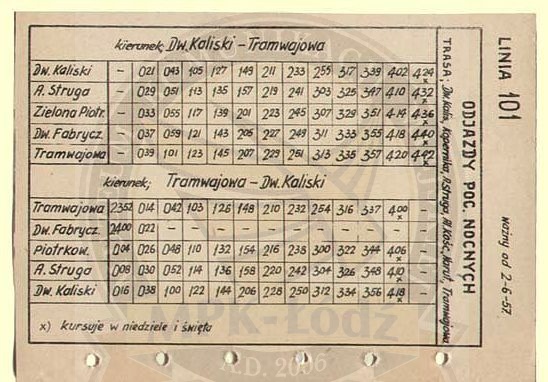 kierunek; Dw. Kaliski – Tramwajowa
Dw. Kaliski – 021 043 105 127 149 211 233 255 317 339 402 424 x
A. Struga – 029 051 113 135 157 219 241 303 325 347 410 432 x
Zielona Piotr. – 033 055 117 139 201 223 245 307 329 351 414 436 x
Dw. Fabrycz. – 037 059 121 143 205 227 249 311 333 355 418 440 x
Tramwajowa – 039 101 123 145 207 229 251 313 335 357 420 442 x
kierunek; Tramwajowa – Dw. Kaliski
Tramwajowa 2352 014 042 103 126 148 210 232 254 316 337 400 x –
Dw. Fabrycz. 2400 022 – – – – – – – – – – –
Piotrkow. 004 026 048 110 132 154 216 238 300 322 344 406 x –
A. Struga 008 030 052 114 136 158 220 242 304 326 348 410 x –
Dw. Kaliski 016 038 100 122 144 206 228 250 312 334 356 418 x –
x) kursuje w niedziele i święta
LINIA 101
ważny od 2-6-57.
ODJAZDY POC. NOCNYCH
TRASA; Dw. Kalis, Kopernika, A. Struga, Al. Kośc., Narut., Tramwajowa
PK-Łódź
A.D. 2006